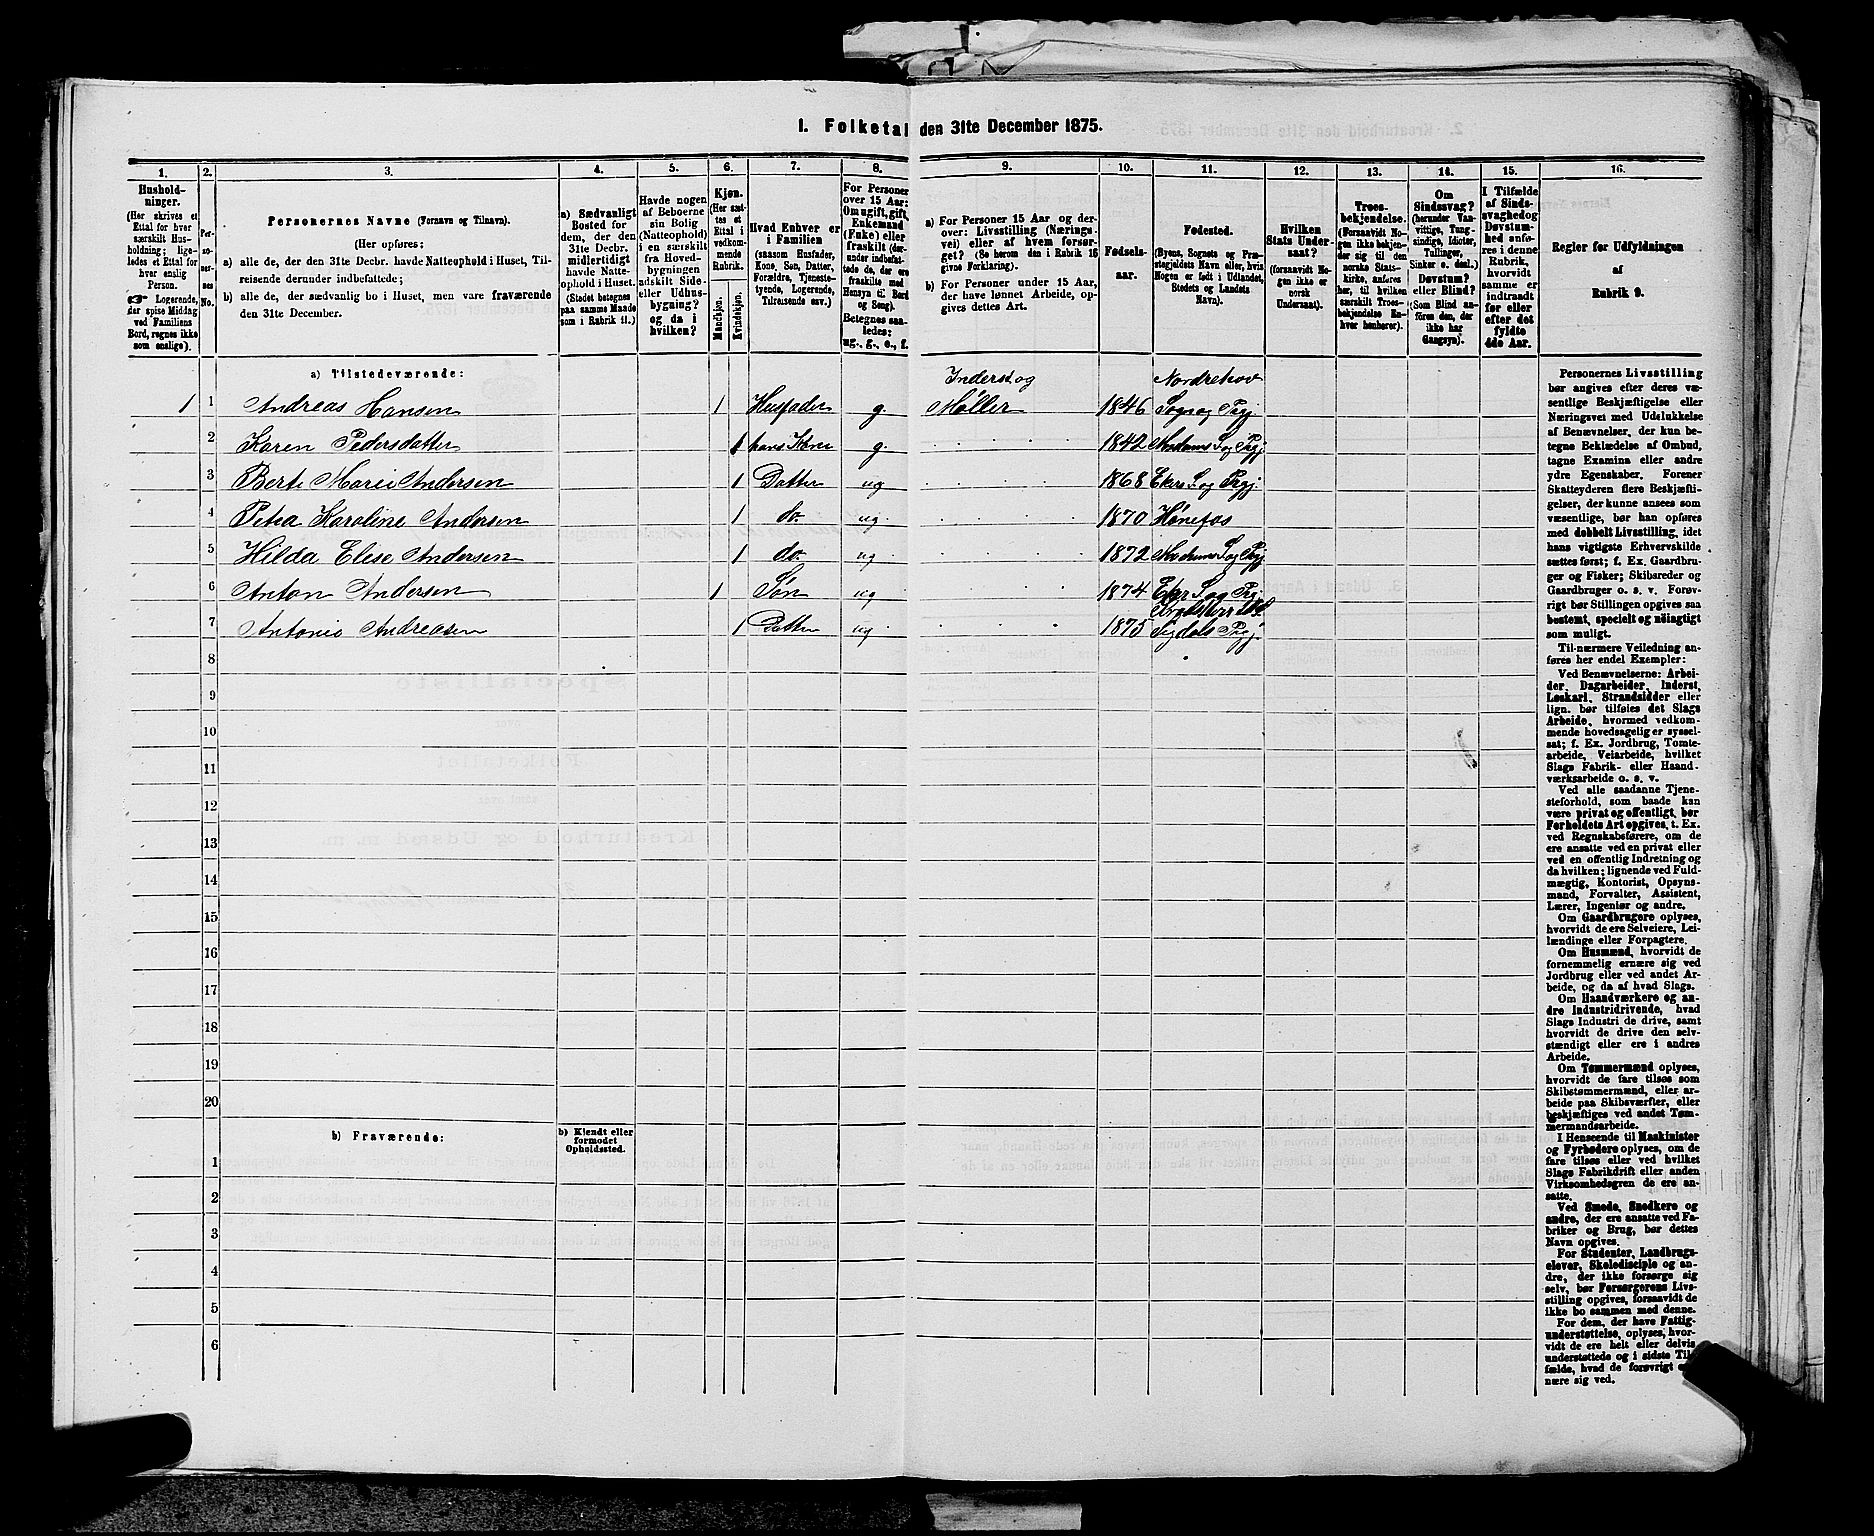 1. Folketal den 31te December 1875.
1. 2. 3. 4. 5. 6. 7. 8. 9. 10. 11. 12. 13. 14. 15. 16.
Hushold-
ninger.
(Her skrives et
Ettal for hver
særskilt Hus-
holdning; lige-
ledes et Ettal for
hver enslig
Person.
☞ Logerende,
der spise Middag
ved Familiens
Bord, regnes ikke
som enslige).
Per-
so-
ner-
nes
No.
Personernes Navne (Fornavn og Tilnavn).
(Her opføres:
a) alle de, der den 31te Decbr. havde Natteophold i Huset, Til-
reisende derunder indbefattede;
b) alle de, der sædvanlig bo i Huset, men vare fraværende
den 31te December.
a) Sædvanligt
Bosted for
dem, der den
31te Decbr.
midlertidigt
havde Natte-
ophold i Huset.
(Stedet betegnes
paa samme Maade
som i Rubrik 11.)
Havde nogen
af Beboerne
sin Bolig
(Natteophold)
i en særskilt
fra Hoved-
bygningen
adskilt Side-
eller Udhus-
bygning?
og da i
hvilken?
Kjøn.
(Her sæt-
tes et
Ettal i
vedkom-
mende
Rubrik.
Mandkjøn.
Kvindekjøn.
Hvad Enhver er
i Familien
(saasom Husfader,
Kone, Søn, Datter,
Forældre, Tjeneste-
tyende, Logerende,
Tilreisende osv.)
For Personer
over 15 Aar:
Om ugift, gift,
Enkemand
(Enke) eller
fraskilt (der-
under indbefat-
tede de, der ere
fraskilte med
Hensyn til Bord
og Seng).
Betegnes saa-
ledes:
ug., g., e., f.
a) For Personer 15 Aar og der-
over: Livsstilling (Nærings-
vei) eller af hvem forsør-
get? (Se herom den i Rubrik 16
givne Forklaring).
b) For Personer under 15 Aar,
der have lønnet Arbeide, op-
gives dettes Art.
Fødsels-
aar.
Fødested.
(Byens, Sognets og Præ-
stegjeldets Navn eller, hvis
Nogen er født i Udlandet,
Stedets og Landets
Navn).
Hvilken
Stats Under-
saat?
(forsaavidt No-
gen ikke er
norsk
Undersaat).
Troes-
bekjendelse.
(Forsaavidt No-
gen ikke bekjen-
der sig til den
norske Stats-
kirke, anføres
her, til hvilken
særskilt Troes-
bekjendelse En-
hver henhører).
Om
Sindssvag?
(herunder Van-
vittige, Tung-
sindige, Idioter,
Tullinger,
Sinker o. desl.)
Døvstum?
eller Blind?
(Som Blind an-
føres den, der
ikke har
Gangsyn).
I Tilfælde
af Sinds-
svaghed og
Døvstum-
hed anfø-
res i denne
Rubrik,
hvorvidt
samme er
indtraadt
før eller
efter det
fyldte
4de Aar.
Regler for Udfyldningen
af
Rubrik 9.
a) Tilstedeværende:
1 1 Andreas Hansen 1 Husfader g. Inderst og Møller 1846 Nordrehov Sogn og Prgj
2 Karen Pedersdatter 1 hans Kone g. 1842 Modums S og Prgj
3 Berte Marie Andersen 1 Datter ug 1868 Ekers S og Prgj.
4 Petra Karoline Andersen 1 do. ug. 1870 Hønefos
5 Hilda Elise Andersen 1 do. ug 1872 Modums S og Prgj
6 Anton Andersen 1 Søn ug 1874 Eker S og Prgj
7 Antonie Andreasen 1 Datter ug. 1875 Sigdals Prgj.
8
9
10
11
12
13
14
15
16
17
18
19
20
b) Fraværende:
b) Kjendt eller
formodet
Opholdssted.
1
2
3
4
5
6
Personernes Livsstilling
bør angives efter deres væ-
sentlige Beskjæftigelse eller
Næringsvei med Udelukkelse
af Benævnelser, der kun be-
tegne Beklædelse af Ombud,
tagne Examina eller andre
ydre Egenskaber. Forener
Skatteyderen flere Beskjæfti-
gelser, der kunne ansees som
væsentlige, bør han opføres
med dobbelt Livsstilling, idet
hans vigtigste Erhvervskilde
sættes først; f. Ex. Gaardbru-
ger og Fisker; Skibsreder og
Gaardbruger o. s. v. Forøv-
rigt bør Stillingen opgives saa
bestemt, specielt og nøiagtigt
som muligt.
Til nærmere Veiledning an-
føres her endel Exempler:
Ved Benævnelserne: Arbei-
der, Dagarbeider, Inderst,
Løskarl, Strandsidder eller
lign. bør tilføies det Slags
Arbeide, hvormed vedkom-
mende hovedsagelig er syssel-
sat; f. Ex. Jordbrug, Tomte-
arbeide, Veiarbeide, hvilket
Slags Fabrik- eller Haand-
værksarbeide o. s. v.
Ved alle saadanne Tjene-
steforhold, som baade kan
være privat og offentligt, bør
Forholdets Art opgives, t. Ex.
ved Regnskabsførere, om de
ere ansatte ved en privat eller
ved en offentlig Indretning og
da hvilken; lignende ved Fuld-
mægtig, Kontorist, Opsyns-
mand, Forvalter, Assistent,
Lærer, Ingeniør og andre.
Om Gaardbrugere oplyses,
hvorvidt de ere Selveiere, Lei-
lændinge eller Forpagtere.
Om Husmænd, hvorvidt de
fornemmelig ernære sig ved
Jordbrug eller ved andet Ar-
beide, og da af hvad Slags.
Om Haandværkere og an-
dre Industridrivende, hvad
Slags Industri de drive, samt
hvorvidt de drive den selv-
stændigt eller ere i andres
Arbeide.
Om Tømmermænd oplyses,
hvorvidt de fare tilsøs som
Skibstømmermænd, eller ar-
beide paa Skibsværfter, eller
beskjæftiges ved andet Tøm-
mermandsarbeide.
I Henseende til Maskinister
og Fyrbødere oplyses, om de
fare tilsøs eller ved hvilket
Slags Fabrikdrift eller anden
Virksomhedsgren de ere an-
satte.
Ved Smede, Snedkere og
andre, der ere ansatte ved Fa-
briker og Brug, bør dettes
Navn opgives.
For Studenter, Landbrugs-
elever, Skoledisciple og an-
dre, der ikke forsørge sig
selv, bør Forsørgerens Livs-
stilling opgives, forsaavidt de
ikke bo sammen med denne.
For dem, der have Fattig-
understøttelse, oplyses, hvor-
vidt de ere helt eller delvis
understøttede og i sidste Til-
fælde, hvad de forøvrigt er-
nære sig ved.